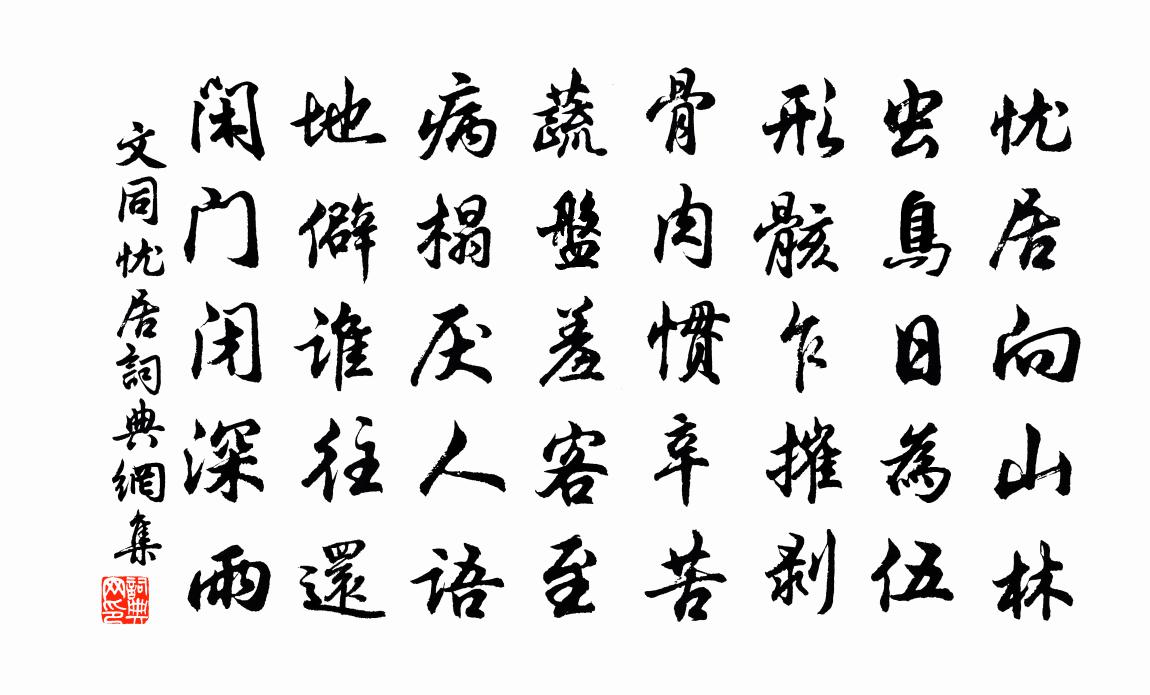 忧居向山林
虫鳥日為伍
形骸乍摧剥
骨肉惯辛苦
蔬盤羞客至
病榻厌人语
地僻誰往還
闲门闭深雨
文同忧居詞典網集
詞典網印